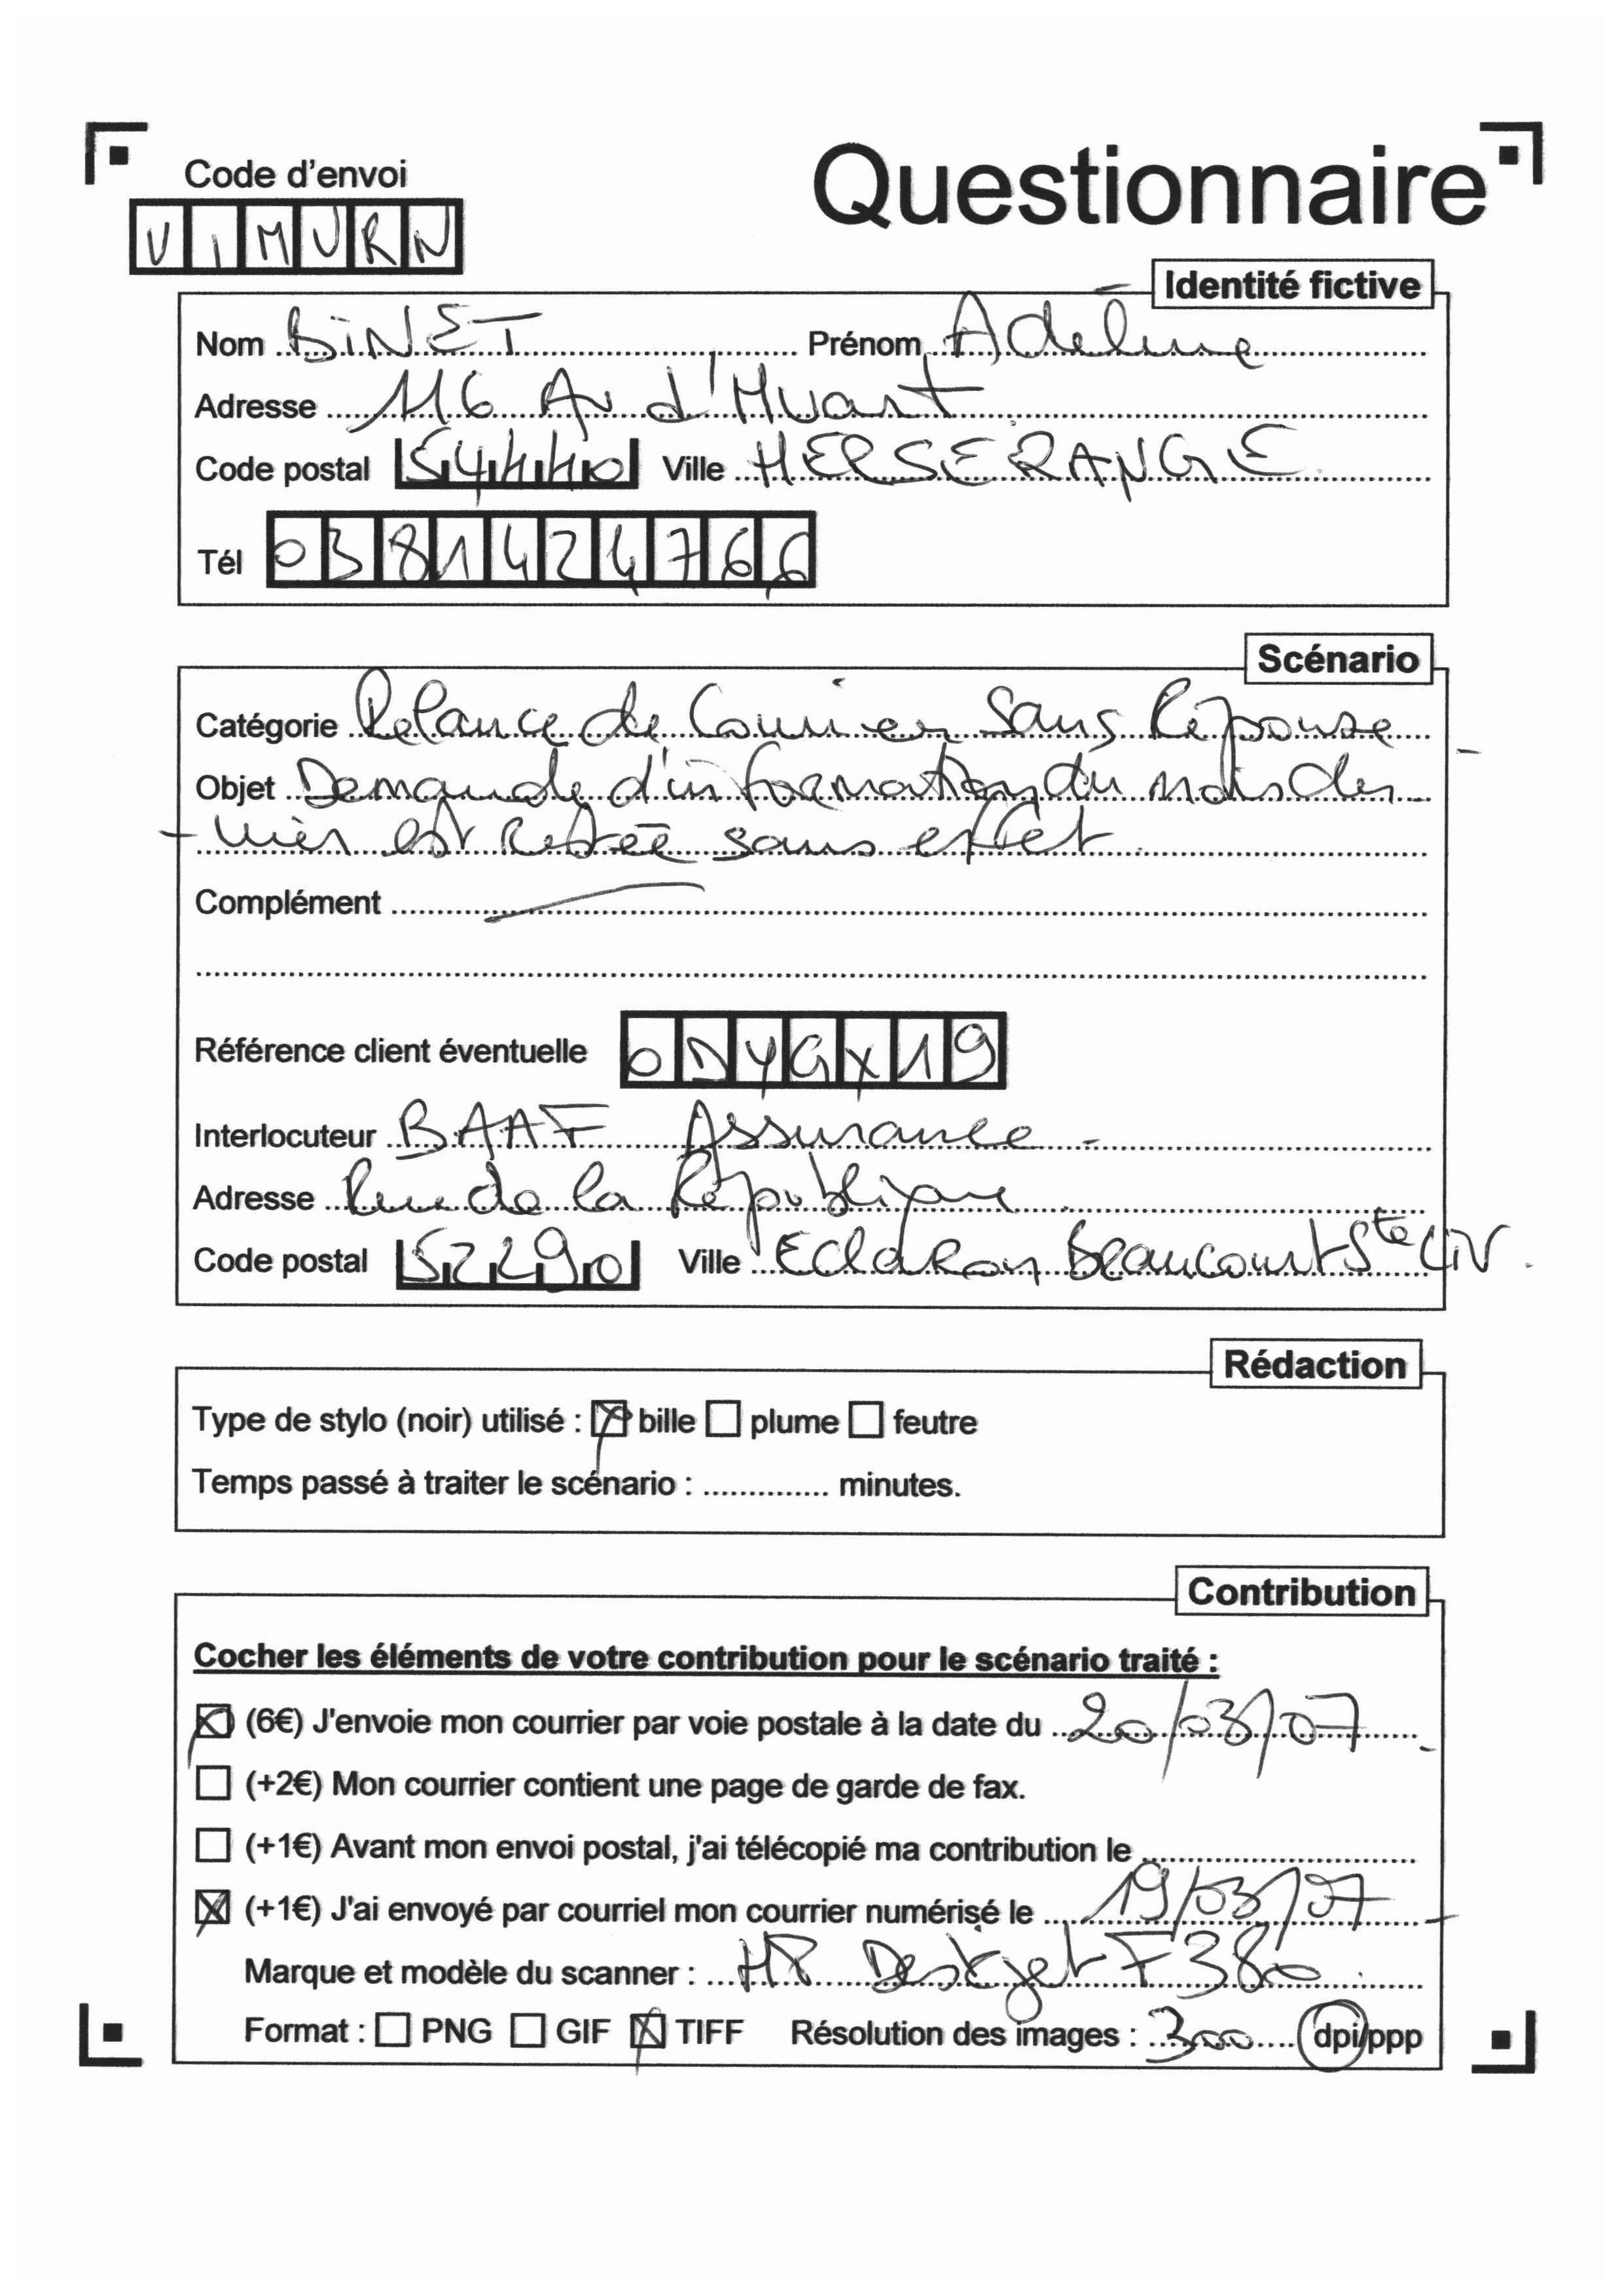 Code d'envoi
Questionnaire
VIMURN
Identité fictive
Nom BINET Prénom Adeline
Adresse 116 Av d'Huart
Code postal 54440 Ville HERSERANGE
Tél 0381424766
Scénario
Catégorie Relance de Courrier Sans Réponse
Objet Demande d'information du mois der-
-nier est restée sans effet
Complément
Référence client éventuelle 0DYGX19
Interlocuteur BAAF Assurance
Adresse Rue de la République
Code postal 52290 Ville Eclaron Braucourt Ste LIV.
Rédaction
Type de stylo (noir) utilisé : bille plume feutre
Temps passé à traiter le scénario : .............. minutes.
Contribution
Cocher les éléments de votre contribution pour le scénario traité :
(6€) J'envoie mon courrier par voie postale à la date du 20/03/07
(+2€) Mon courrier contient une page de garde de fax.
(+1€) Avant mon envoi postal, j'ai télécopié ma contribution le
(+1€) J'ai envoyé par courriel mon courrier numérisé le 19/03/07
Marque et modèle du scanner : HP Deskjet F380
Format : PNG GIF TIFF Résolution des images : 300 dpi/ppp